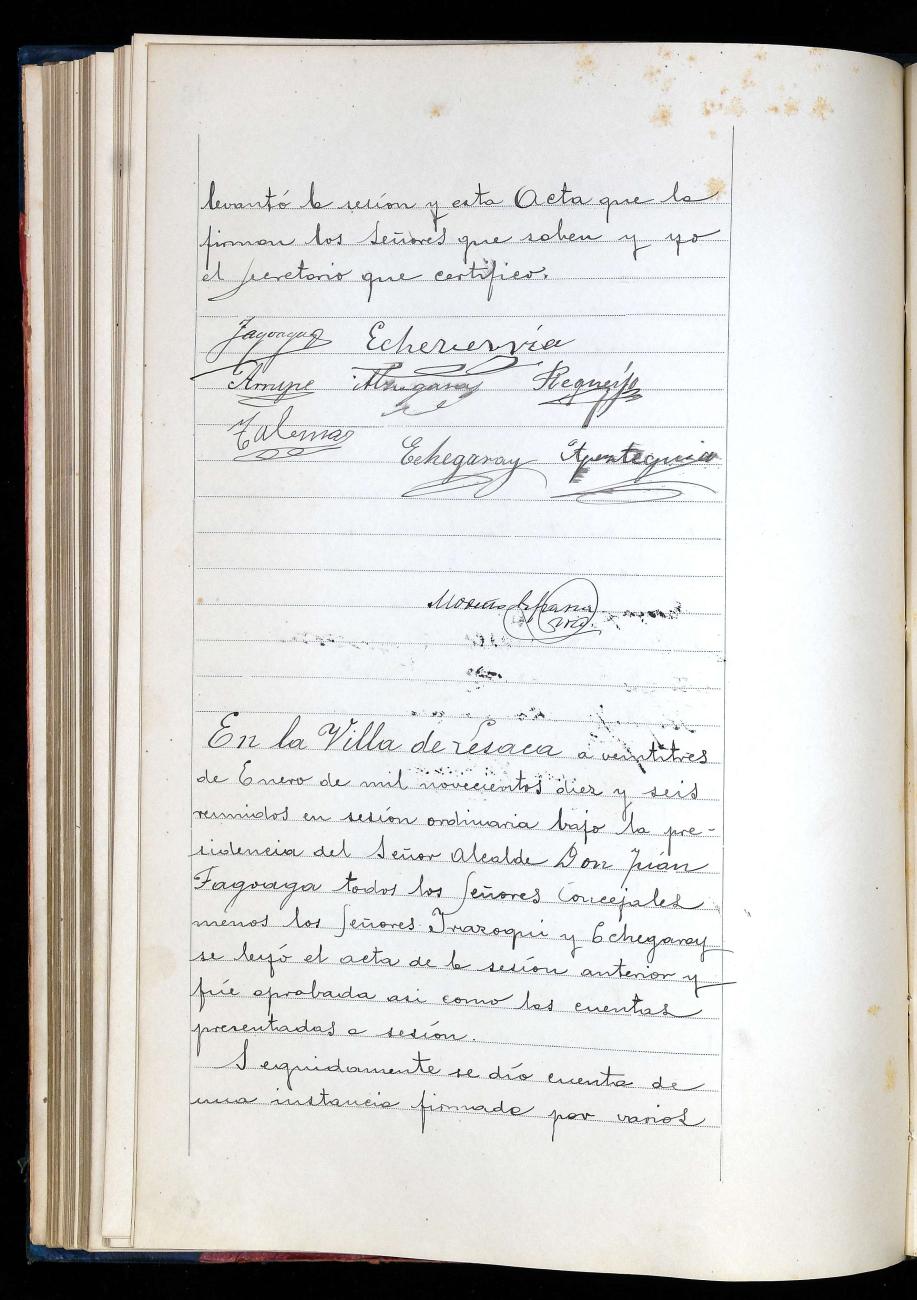 levantó la sesión y esta Acta que la
firman los Señores que saben y yo
el Secretario que certifico.
Fagoaga Echeverría
Arrupe
Echegaray Apezteguia
En la Villa de Lesaca a veintitres
de Enero de mil novecientos diez y seis
reunidos en sesión ordinaria bajo la pre-
sidencia del Señor Alcalde Don Juan
Fagoaga todos los Señores Concejales
menos los Señores Irazoqui y Echegaray
se leyó el acta de la sesión anterior y
fúe aprobada asi como las cuentas
presentadas a sesión.
Seguidamente se dío cuenta de
una instancia firmada por varios